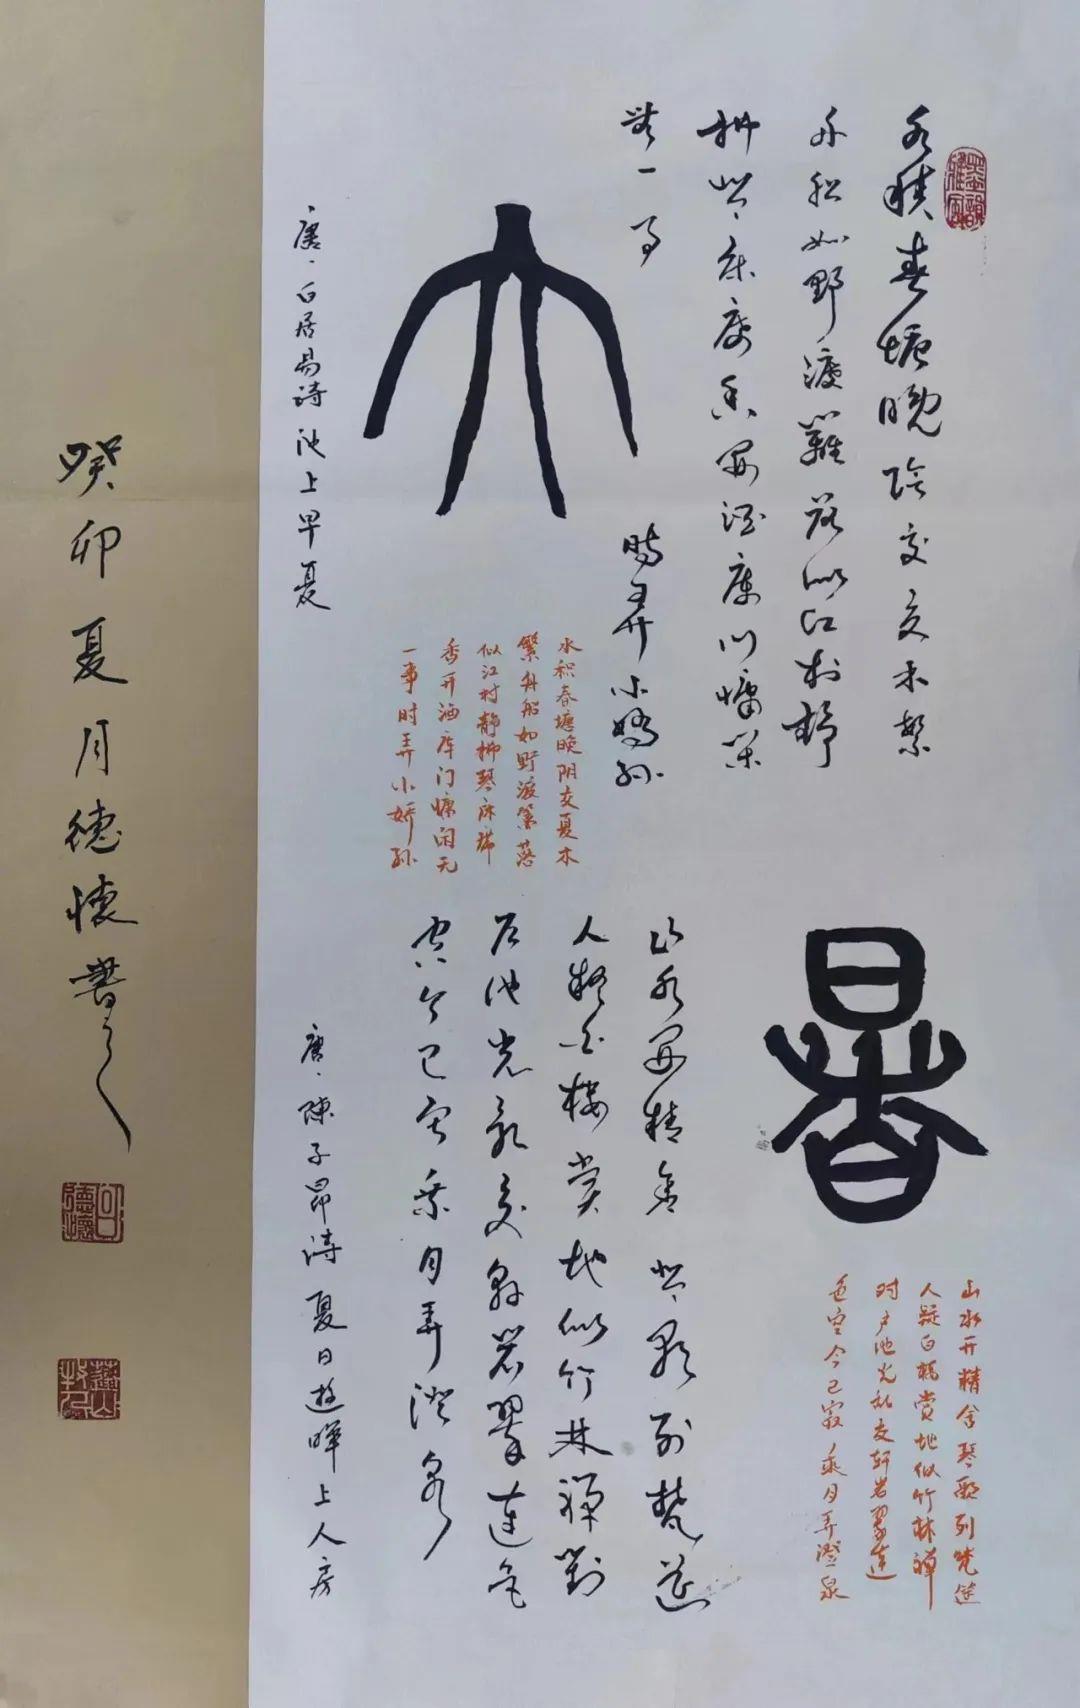 水積春塘晚陰交夏木繁
舟船如野渡籬落似江村靜
拂琴床席香開酒庫門慵閑
無一事
時弄小嬌孫
大
唐、白居易詩池上早夏
水积春塘晚阴交夏木
繁舟船如野渡篱落
似江村静拂琴床席
香开酒库门慵闲无
一事时弄小娇孙
暑
山水开精舍琴歌列梵筵
人疑白楼赏地似竹林禅
对户池光乱交轩岩翠连
色空今已寂乘月弄澄泉
山水開精舍琴歌列梵筵
人疑白樓賞地似竹林禪對
戶池光亂交軒岩翠連色
空今已寂乘月弄澄泉
唐、陳子昂詩夏日遊暉上人房
癸卯夏月德懷書之
何德懷